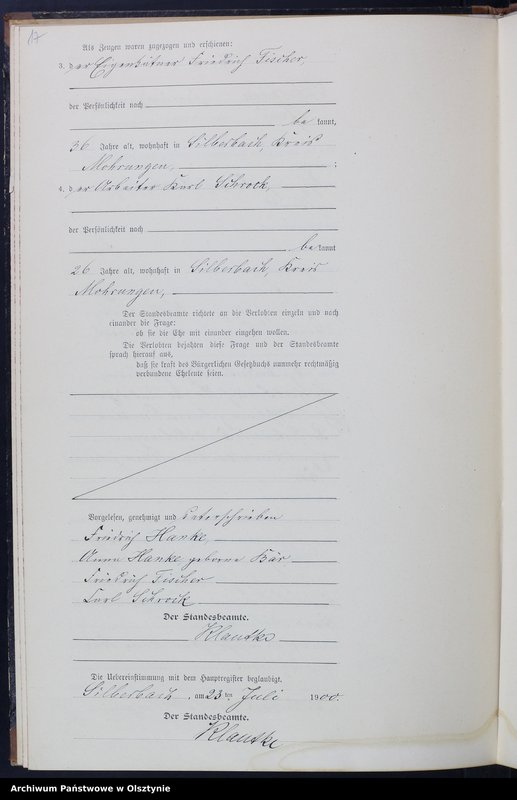 17
Als Zeugen waren zugezogen und erschienen:
3. der Eigenkätner Friedrich Fischer
der Persönlichkeit nach
be kannt,
36 Jahre alt, wohnhaft in Silberbach, Kreis
Mohrungen, ;
4. der Arbeiter Karl Schrock,
der Persönlichkeit nach
be kannt
26 Jahre alt, wohnhaft in Silberbach, Kreis
Mohrungen,
Der Standesbeamte richtete an die Verlobten einzeln und nach
einander die Frage:
ob sie die Ehe mit einander eingehen wollen.
Die Verlobten bejahten diese Frage und der Standesbeamte
sprach hierauf aus,
daß sie kraft des Bürgerlichen Gesetzbuchs nunmehr rechtmäßig
verbundene Eheleute seien.
Vorgelesen, genehmigt und unterschrieben
Friedrich Hanke
Anna Hanke geborne Bär
Friedrich Fischer
Karl Schrock
Der Standesbeamte.
Klautke
Die Uebereinstimmung mit dem Hauptregister beglaubigt.
Silberbach, am 23 ten Juli 1900.
Der Standesbeamte.
Klautke
Archiwum Państwowe w Olsztynie